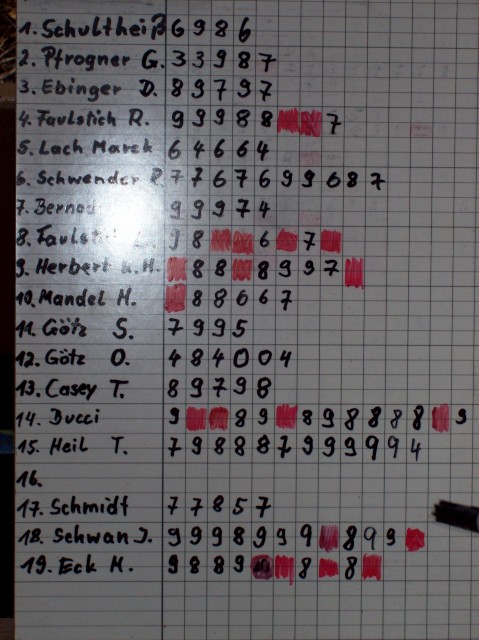 1. Schultheiß 6 9 8 6
2. Pfrogner G. 3 3 9 8 7
3. Ebinger D. 8 9 7 9 7
4. Faulstich R. 9 9 9 8 8 7
5. Lach Marek 6 4 6 6 4
6. Schwender R. 7 7 6 7 6 9 9 6 8 7
7. 9 9 9 7 4
8. 9 8 6 7
9. Herbert H. 8 8 8 9 9 7
10. Mandel H. 8 8 6 6 7
11. Götz S. 7 9 9 5
12. Götz O. 4 8 4 0 0 4
13. Casey T. 8 9 7 9 8
14. Ducci 9 8 9 8 9 8 8 8 8 9
15. Heil T. 7 9 8 8 8 7 9 9 9 9 9 4
16.
17. Schmidt 7 7 8 5 7
18. Schwan J. 9 9 9 8 9 9 9 8 9 9
19. Eck H. 9 8 8 9 8 8